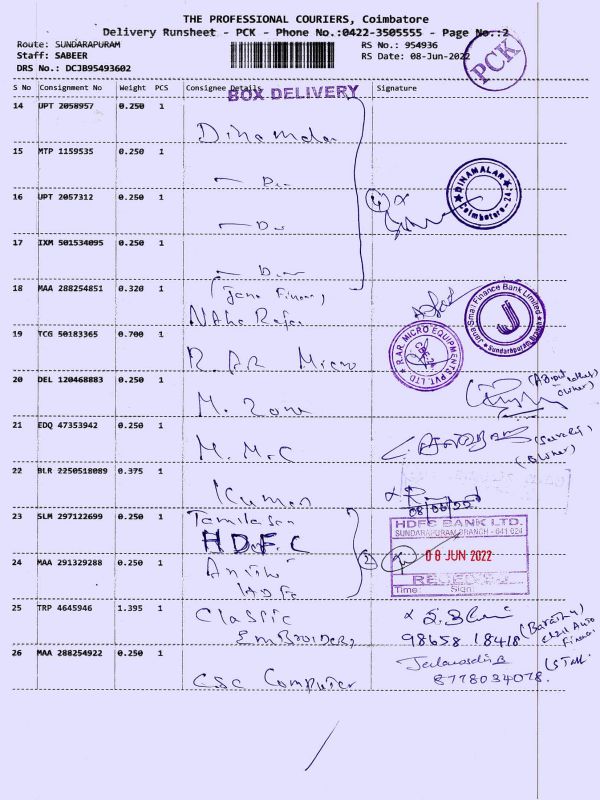 THE PROFESSIONAL COURIERS, Coimbatore
Delivery Runsheet - PCK - Phone No.:0422-3505555 - Page No.:2
Route: SUNDARAPURAM
RS No.: 954936
Staff: SABEER
RS Date: 08-Jun-2022
DRS No.: DCJB95493602
PCK
S No Consignment No Weight PCS Consignee Details Signature
BOX DELIVERY
14 UPT 2058957 0.250 1 Dinamalar
15 MTP 1159535 0.250 1
DINAMALAR
Coimbatore-24
16 UPT 2057312 0.250 1
17 IXM 501534095 0.250 1
18 MAA 288254851 0.320 1
Jana Small Finance Bank Limited
Sundarapuram Branch
19 TCG 50183365 0.700 1 R. AR Micro
R.AR. MICRO EQUIPMENTS PVT. LTD
20 DEL 120468883 0.250 1
owner)
21 EDQ 47353942 0.250 1 M. M. C
(Owner)
22 BLR 2250518089 0.375 1 Kumar
08/06/22
23 SLM 297122699 0.250 1
H.D.F.C
HDFC BANK LTD.
SUNDARAPURAM BRANCH - 641 024
08 JUN 2022
RECEIVED
Time Sign
24 MAA 291329288 0.250 1
25 TRP 4645946 1.395 1 Classic
Embroiders
98658 18418
26 MAA 288254922 0.250 1 CSC Computer
8778034078.